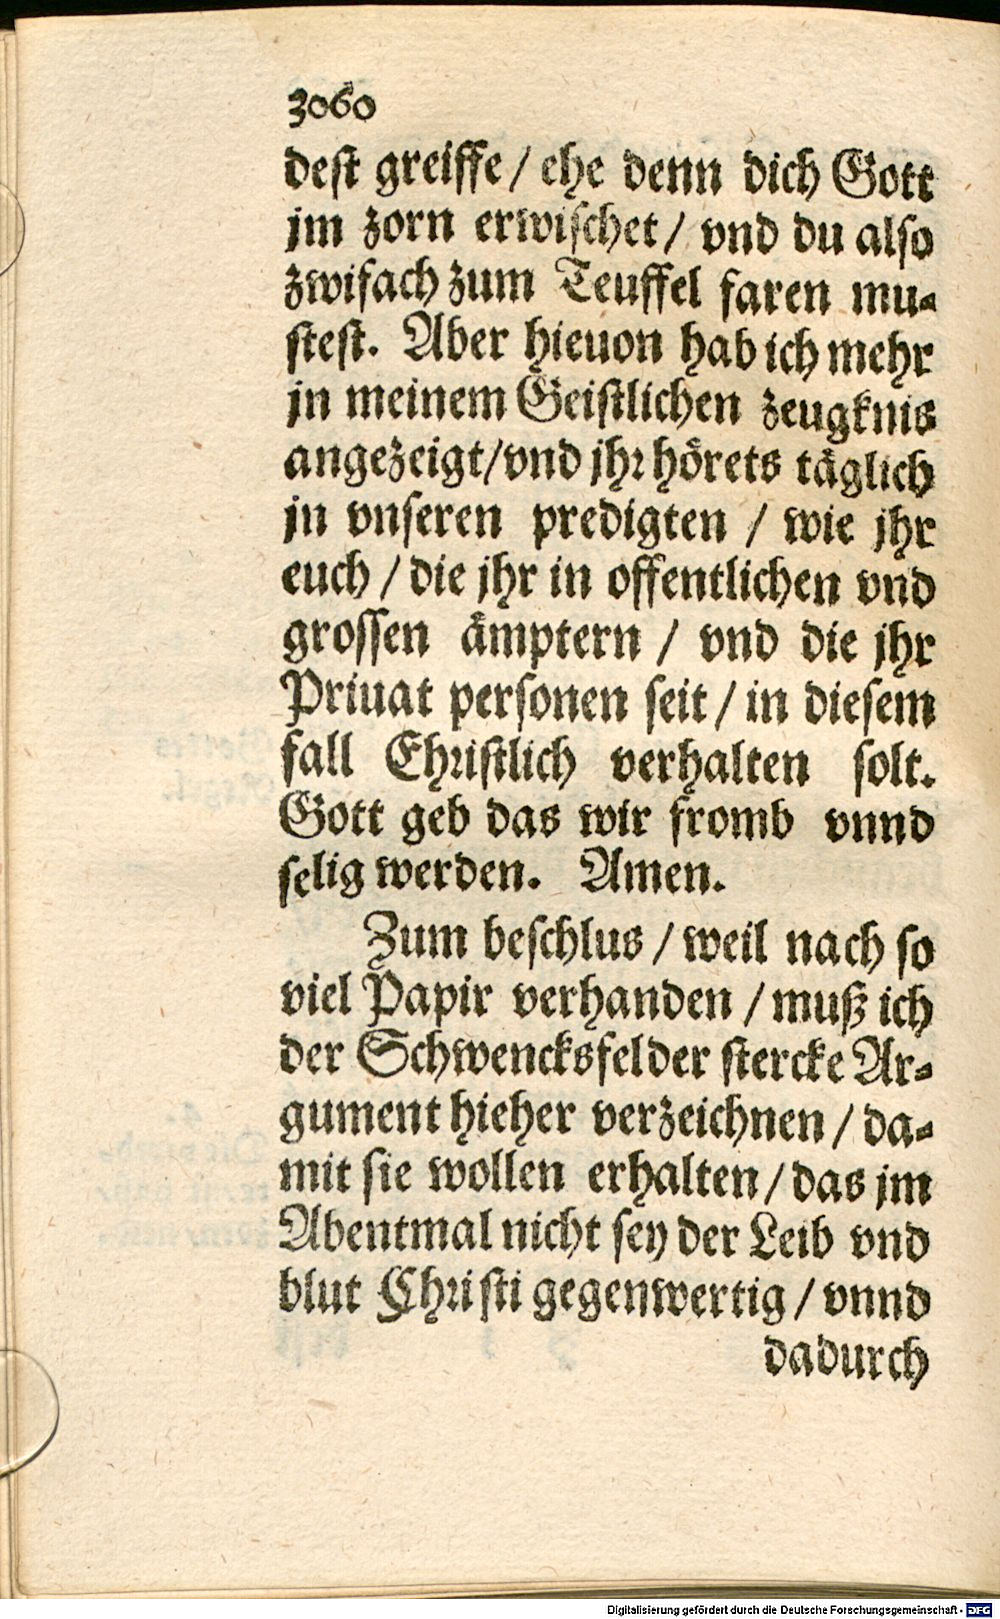 3060
deſt greiffe / ehe denn dich Gott
jm zorn erwiſchet / vnd du alſo
zwifach zum Teuffel faren mu⸗
ſteſt. Aber hieuon hab ich mehr
jn meinem Geiſtlichen zeugknis
angezeigt/vnd jhr hörets täglich
jn vnſeren predigten / wie jhr
euch / die jhr in offentlichen vnd
groſſen ämptern / vnd die jhr
Priuat perſonen ſeit / in dieſem
fall Chriſtlich verhalten ſolt.
Gott geb das wir fromb vnnd
ſelig werden. Amen.
Zum beſchlus / weil nach ſo
viel Papir verhanden / muß ich
der Schwencksfelder ſtercke Ar⸗
gument hieher verzeichnen / da⸗
mit ſie wollen erhalten / das jm
Abentmal nicht ſey der Leib vnd
blut Chriſti gegenwertig / vnnd
dadurch
Digitalisierung gefördert durch die Deutsche Forschungsgemeinschaft - DFG